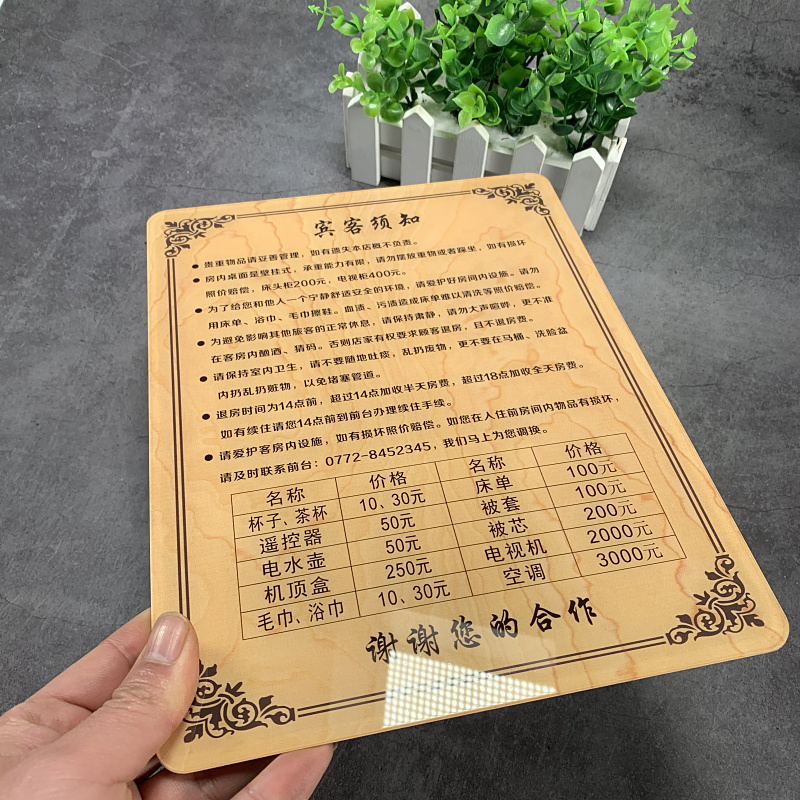 宾客须知
● 贵重物品请妥善管理，如有遗失本店概不负责。
● 房内桌面是壁挂式，承重能力有限，请勿摆放重物或者踩坐，如有损坏
照价赔偿，床头柜200元，电视柜400元。
● 为了给您和他人一个宁静舒适安全的环境，请爱护好房间内设施。请勿
用床单、浴巾、毛巾擦鞋。血渍、污渍造成床单难以清洗等照价赔偿。
● 为避免影响其他旅客的正常休息，请保持肃静，请勿大声喧哗，更不准
在客房内酗酒、猜码。否则店家有权要求顾客退房，且不退房费。
● 请保持室内卫生，请不要随地吐痰，乱扔废物，更不要在马桶、洗脸盆
内扔乱扔赃物，以免堵塞管道。
● 退房时间为14点前，超过14点加收半天房费，超过18点加收全天房费。
如有续住请您14点前到前台办理续住手续。
● 请爱护客房内设施，如有损坏照价赔偿。如您在入住前房间内物品有损坏，
请及时联系前台：0772-8452345，我们马上为您调换。
名称 价格 名称 价格
杯子、茶杯 10、30元 床单 100元
遥控器 50元 被套 100元
电水壶 50元 被芯 200元
机顶盒 250元 电视机 2000元
毛巾、浴巾 10、30元 空调 3000元
谢谢您的合作